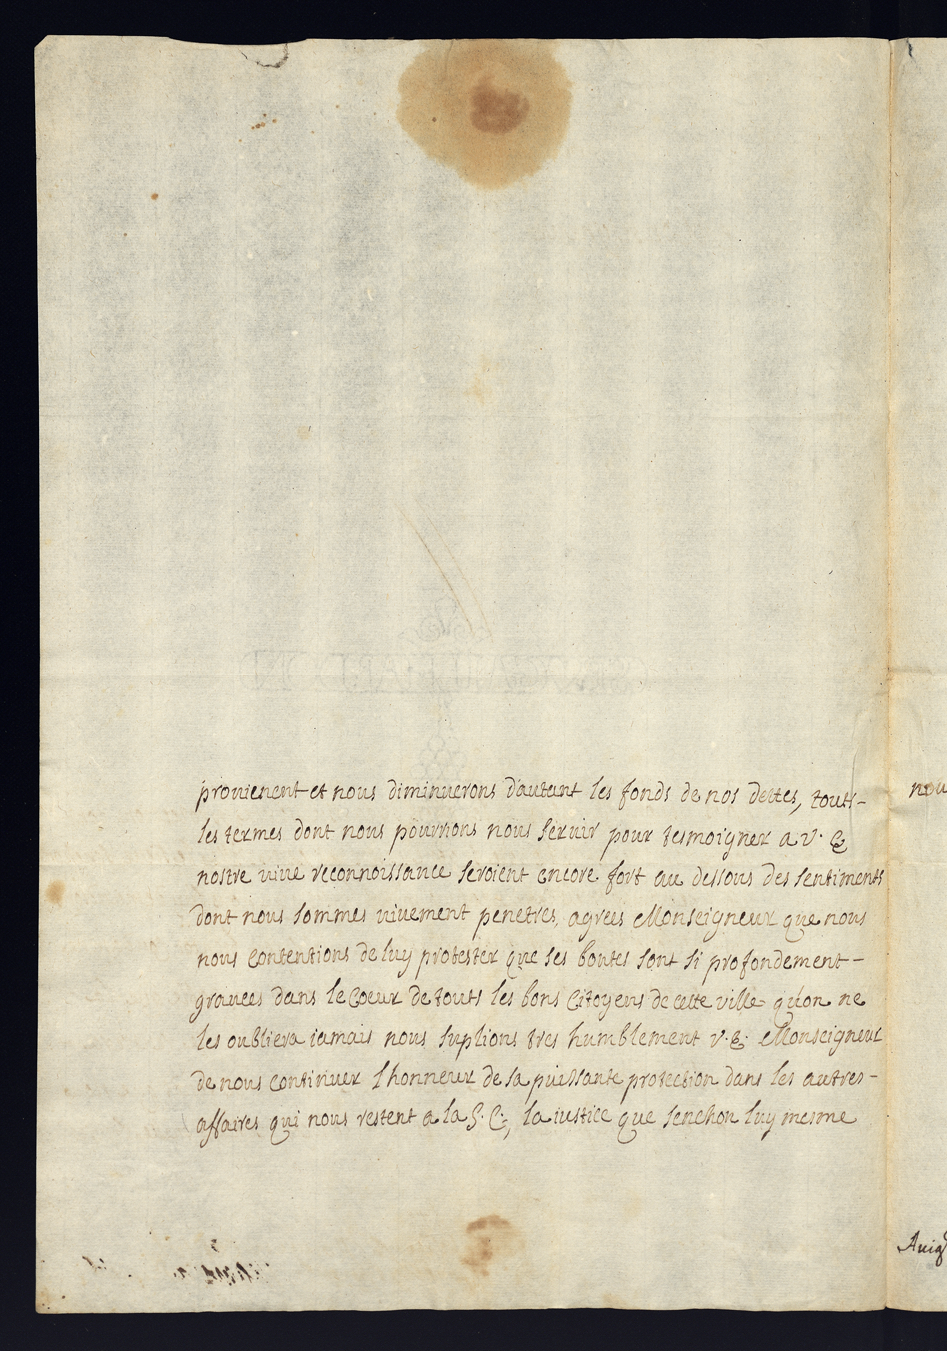 provienent et nous diminuerons d'autant les fonds de nos dettes, touts-
les termes dont nous pourrions nous servir pour tesmoigner a v. E
nostre vive reconnoissance seroient encore fort au dessous des sentiments
dont nous sommes vivement penetres, agrees Monseigneur que nous
nous contentions de luy protester que ses bontes sont si profondement-
gravees dans le Coeur de touts les bons Citoyens de cette ville qu'on ne
les oubliera iamais nous suplions tres humblement v. E. Monseigneur
de nous continuer l honneur de sa puissante protection dans les autres-
affaires qui nous restent a la S. C., la iustice que luy mesme
nou
Avig